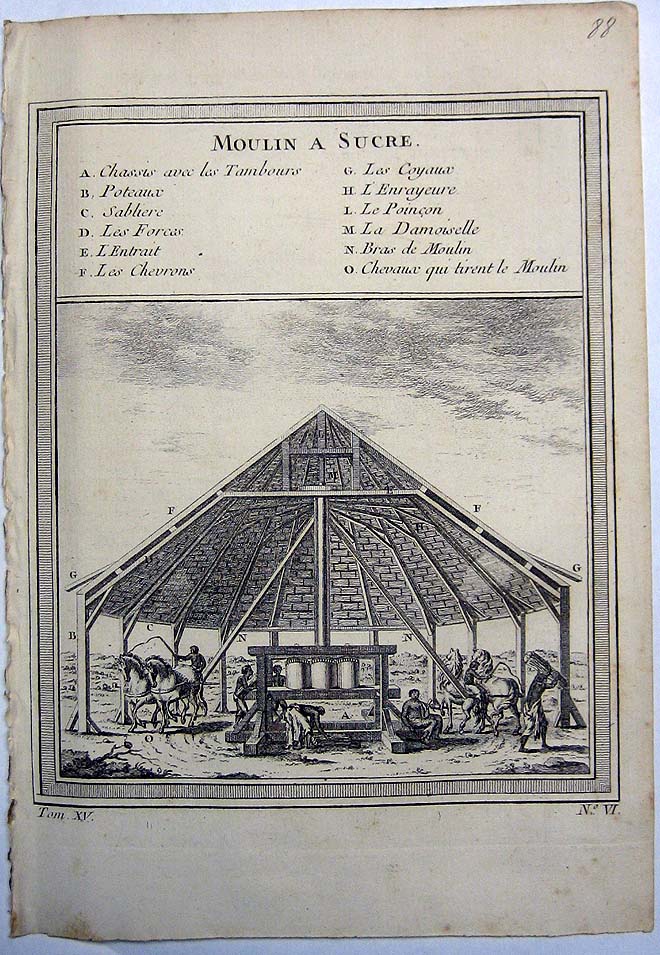 88
MOULIN A SUCRE.
A. Chassis avec les Tambours
B. Poteaux
C. Sabliere
D. Les Forces
E. L'Entrait
F. Les Chevrons
G. Les Coyaux
H. L'Enrayeure
L. Le Poinçon
M. La Damoiselle
N. Bras de Moulin
O. Chevaux qui tirent le Moulin
F F
G G
B C N N
A
O
Tom. XV. N.º VI.